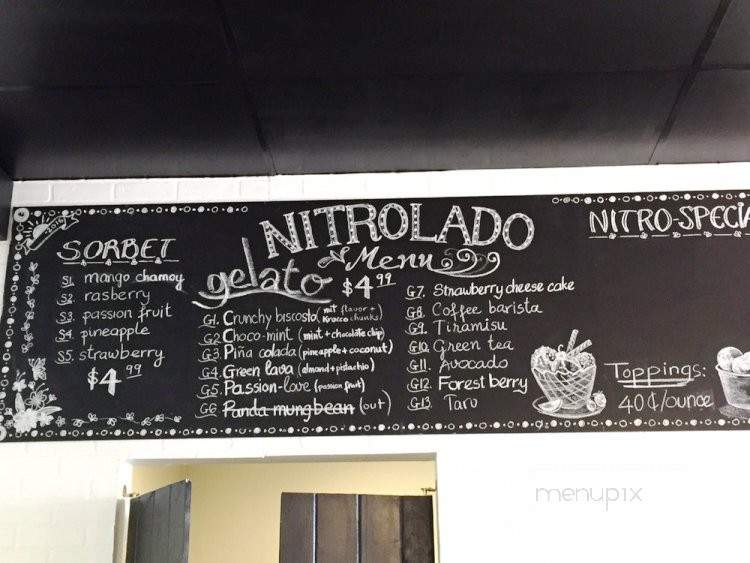 NITROLADO
Menu
SORBET
S1. mango chamoy
S2. rasberry
S3. passion fruit
S4. pineapple
S5. strawberry
$4.99
gelato $4.99
G1. Crunchy biscosto (mit flavor + Krocco chunks)
G2. Choco-mint (mint + chocolate chip)
G3. Piña colada (pineapple + coconut)
G4. Green lava (almond + pistachio)
G5. Passion-love (passion fruit)
G6. Panda mung bean (out)
G7. Strawberry cheese cake
G8. Coffee barista
G9. Tiramisu
G10. Green tea
G11. Avocado
G12. Forest berry
G13. Taro
NITRO-SPECIA
Toppings:
40¢/ounce
menupix